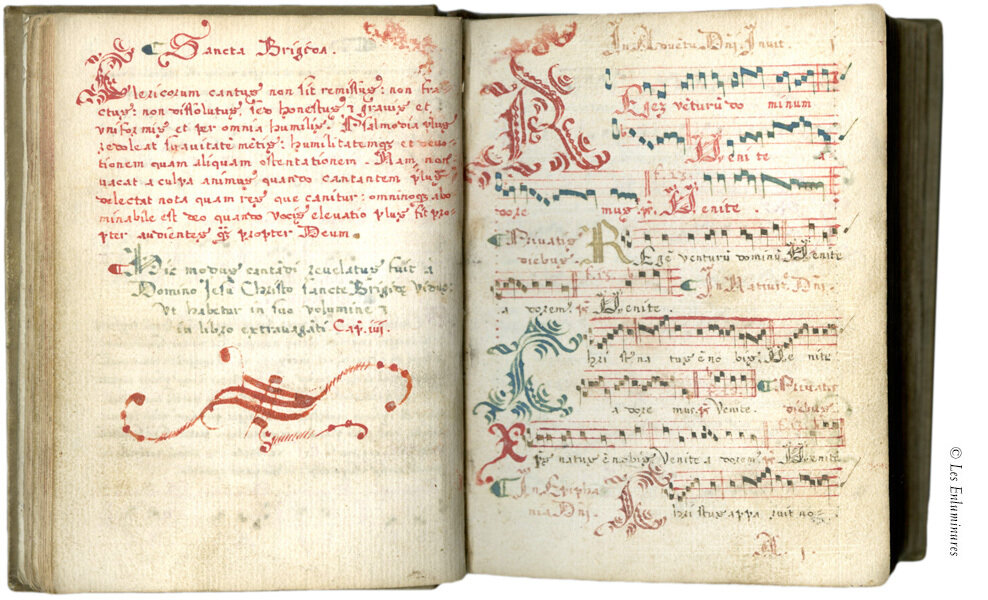 Sancta Brigida.
Clericorum cantus non sit remissus: non fra-
ctus: non dissolutus, sed honestus ⁊ gravis et
uniformis et per omnia humilis. Psalmodia plus
redoleat suavitatē mētis: humilitatemq; et devo-
tionem quam aliquam ostentationem. Nam non
vacat a culpa animus quando cantantem plus
delectat nota quam res que canitur: omninoq; abo
minabile est deo quando vocis elevatio plus fit pro-
pter audientes q̃ propter Deum.
Hic modus cantādi revelatus fuit a
Domino Jesu Christo sancte Brigide vidue:
Ut habetur in suo volumine ⁊
in libro extravagāti Cap. iiij.
In Advētu Dñi. Invit.
Regē vēturū do minum
Venite
dore mus. ps. Venite.
Privatis Regē venturū dominū Venite
diebus
a dorem. ps. Venite. In Nativit. Dñi.
Chri st. na tus ē no bis. Ve nite
a dore mus. ps. Venite. Privatis
diebus
Xps natus ē nobis. Venite a dorem. ps. Venite
In Epipha
nia Dñi. Christus appa ruit no-
© Les Enluminures